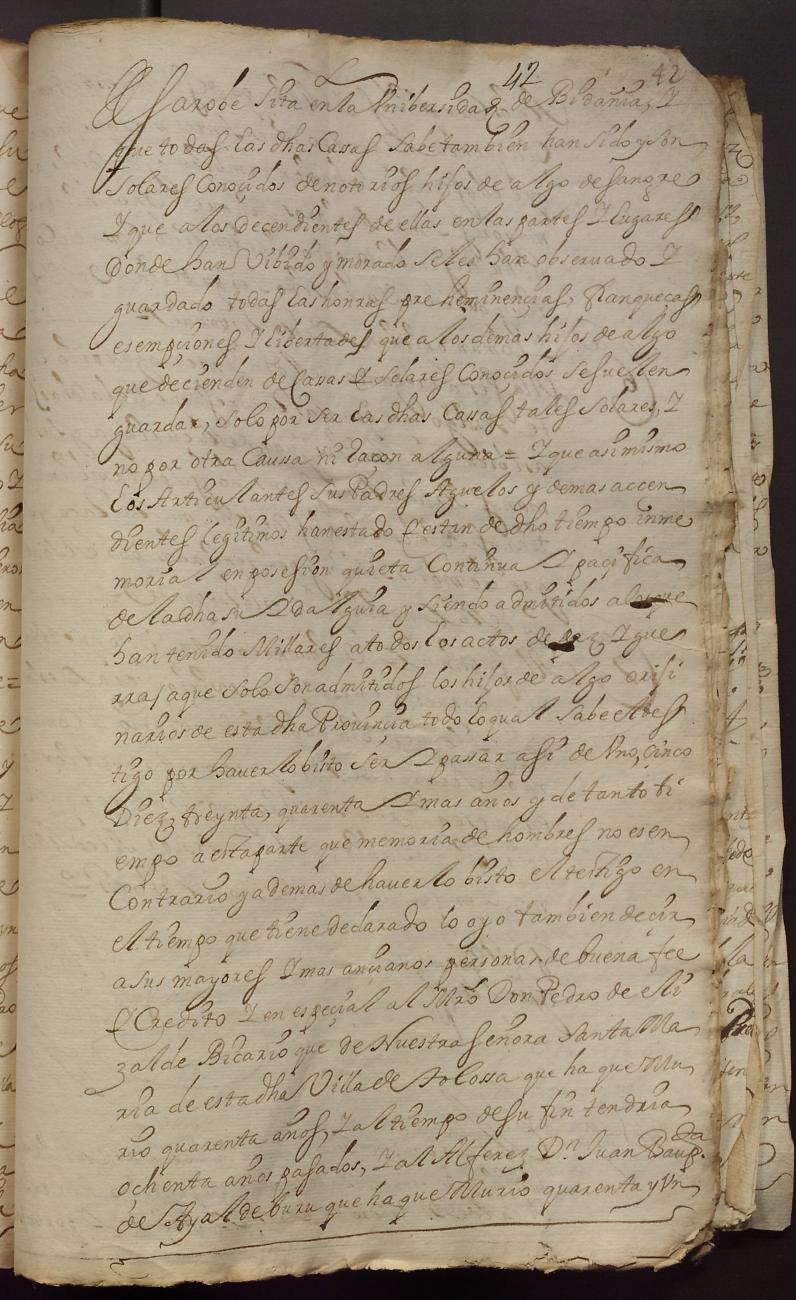 42 42
Garobe sita en la Unibersidad de Bidania, Y
que todas las dhas Cassas sabe tambien han sido y son
Solares Conoçidos de notorios hijos de algo de sangre
Y que a los decendientes de ellas en las partes Y lugares
donde han Vibido y morado se les han observado Y
guardado todas las honras preheminençias, franqueças
esempçiones Y libertades que a los demas hijos de algo
que decienden de Cassas Y Solares Conoçidos se suelen
guardar, solo por ser las dhas Cassas tales Solares, Y
no por otra Caussa ni Raçon alguna = Y que asimismo
los Articulantes sus Padres Aguelos y demas accen
dientes legitimos han estado Y estan de dho tiempo inme
morial en posesion quieta Continua Y paçifica
de la dha su Ydalguia y siendo admitidos
han tenido Millares a todos los actos de Y que
rra, a que solo son admitidos los hijos de algo oriji
narios de esta dha Provincia todo lo qual sabe el tes
tigo por haverlo bisto ser Y passar asi de Uno, Cinco
Diez, treynta, quarenta Y mas años y de tanto ti
empo a esta parte que memoria de hombres no es en
Contrario y ademas de haverlo bisto el testigo en
el tiempo que tiene declarado lo oyo tambien decir
a sus mayores Y mas ançianos personas de buena fee
Y Credito Y en espeçial al Mro Don Pedro de eli
zalde Bicario que de Nuestra señora Santa Ma
ria de esta dha Villa de Tolossa que ha que Mu
rio quarenta años, Y al tiempo de su fin tendria
ochenta años pasados, Y al Alferez Dn Juan Baupta
de Ayaldeburu que ha que Murio quarenta y Un